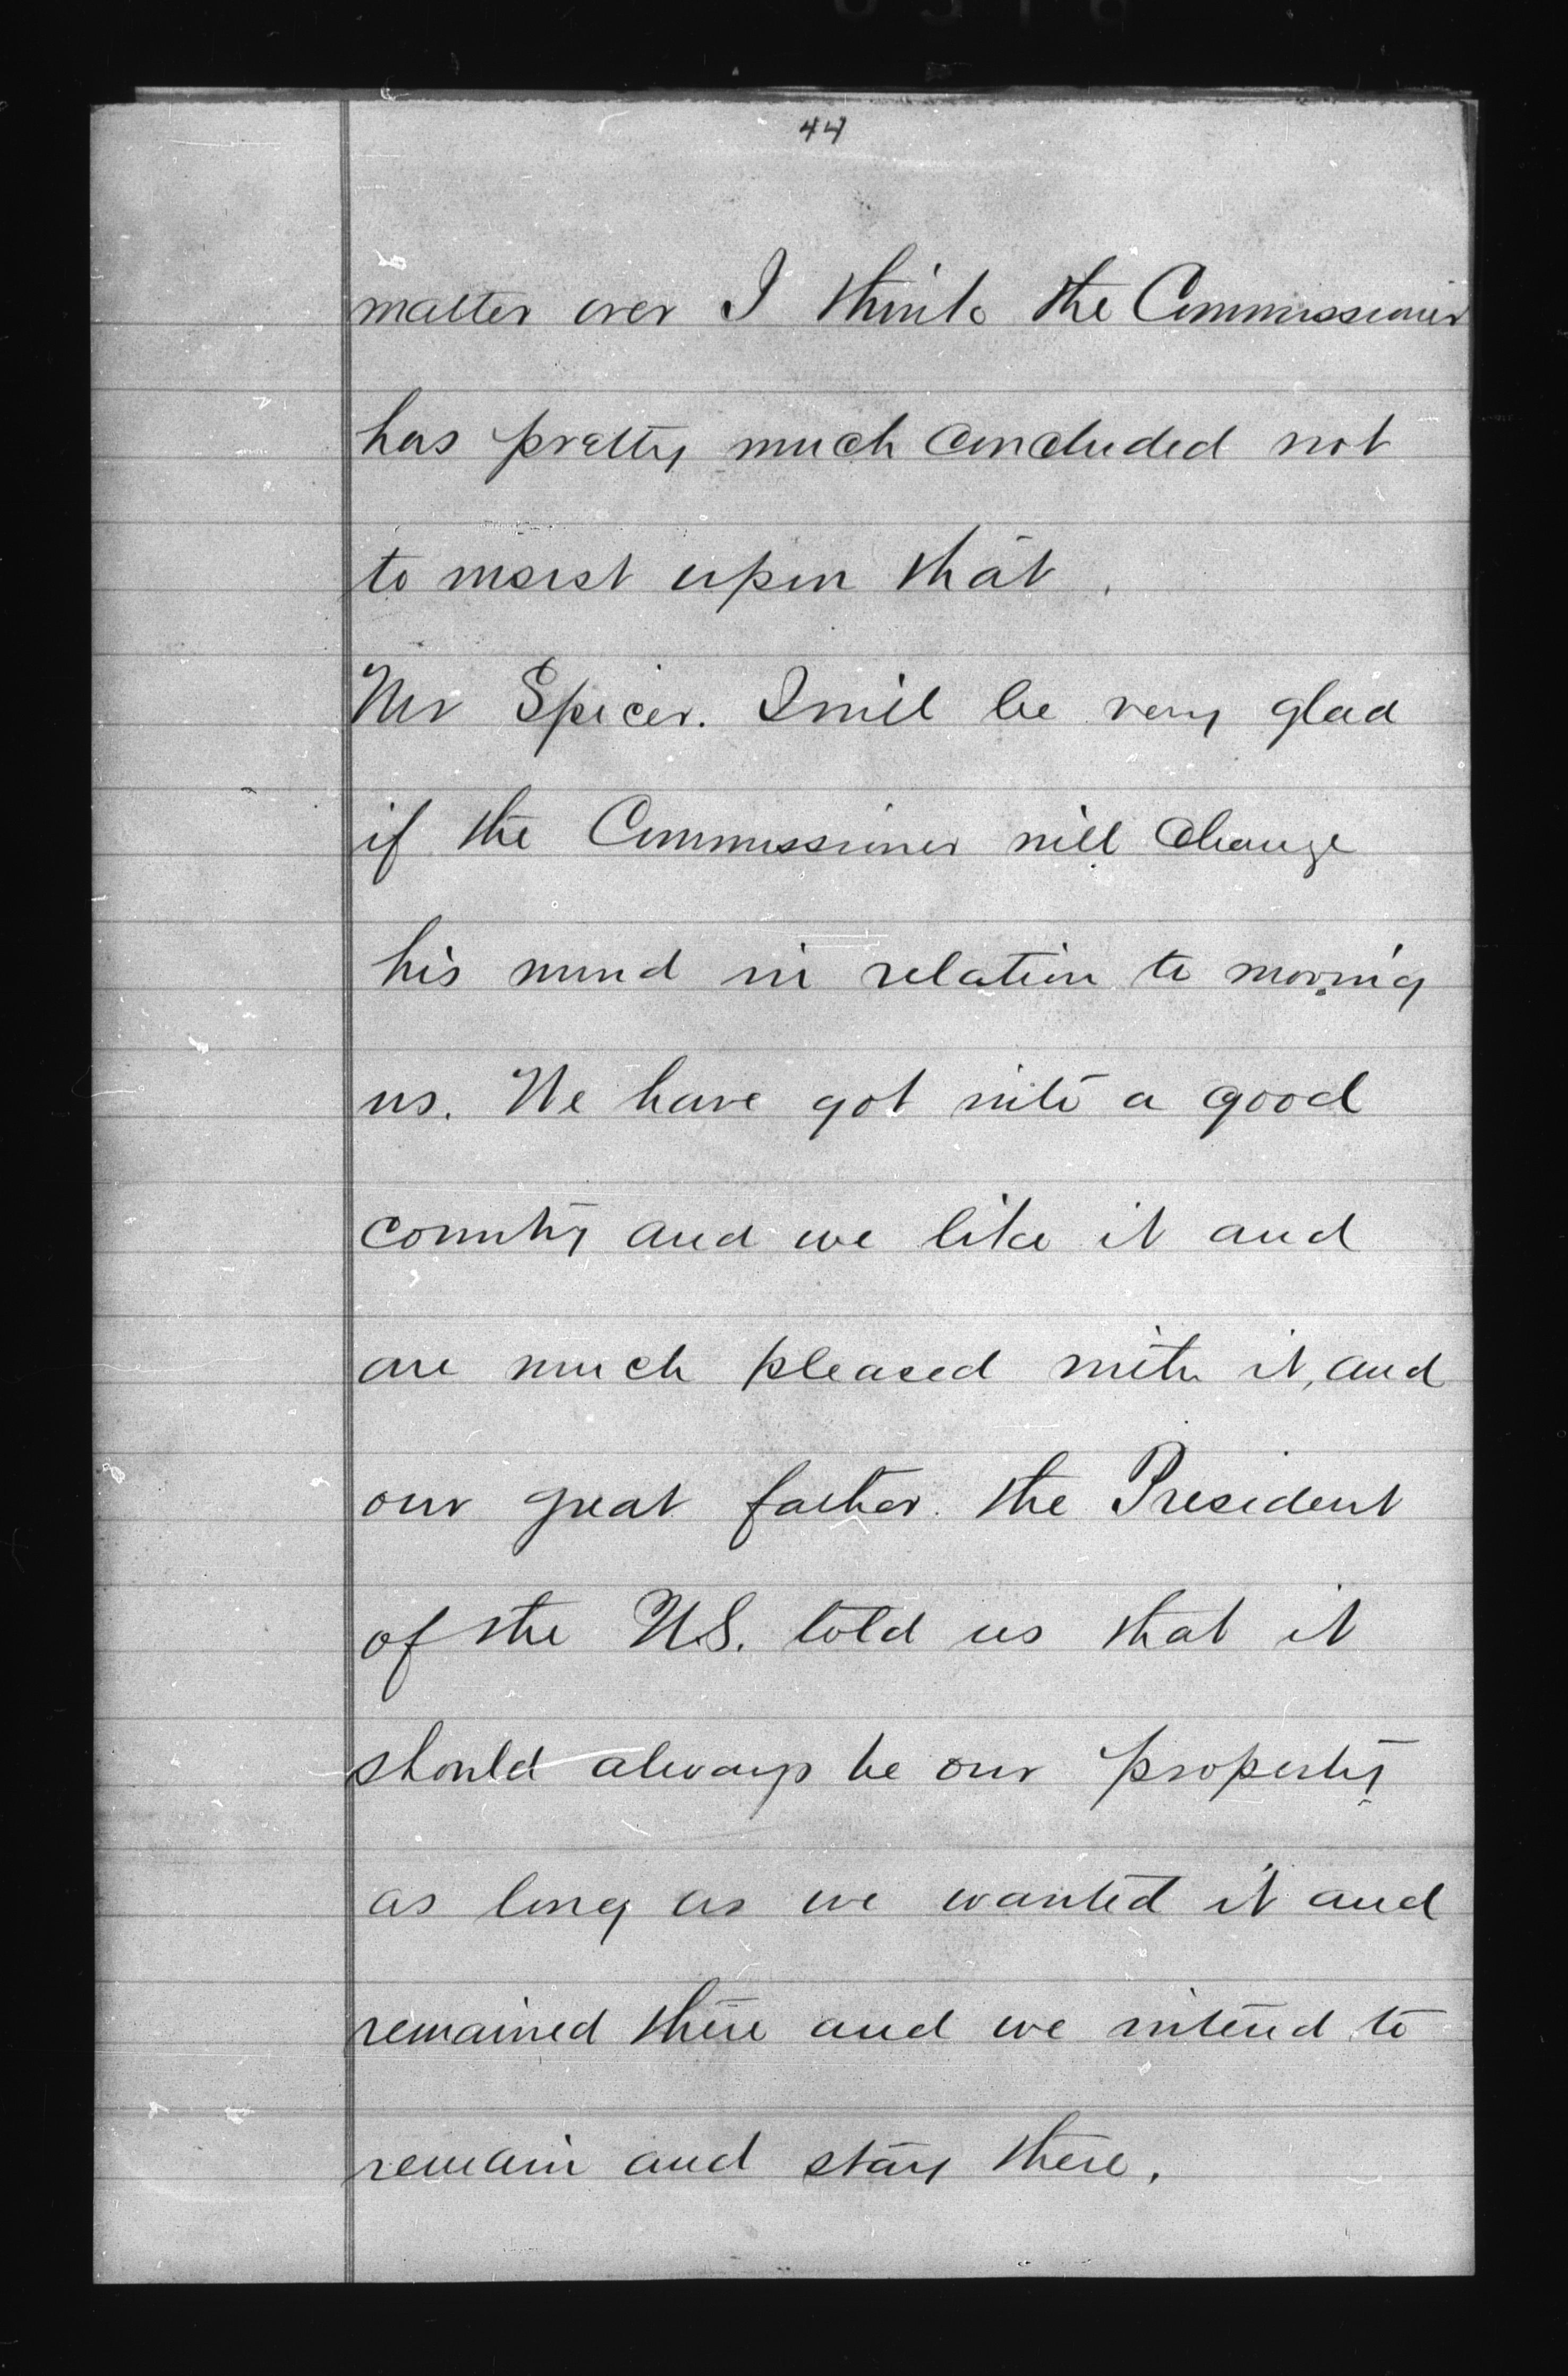 44
matter over I think the Commissioner
has pretty much concluded not
to insist upon that.
Mr Spicer. I will be very glad
if the Commissioner will change
his mind in relation to moving
us. We have got into a good
country and we like it and
are much pleased with it, and
our great father the President
of the U.S. told us that it
should always be our property
as long as we wanted it and
remained there and we intend to
remain and stay there.